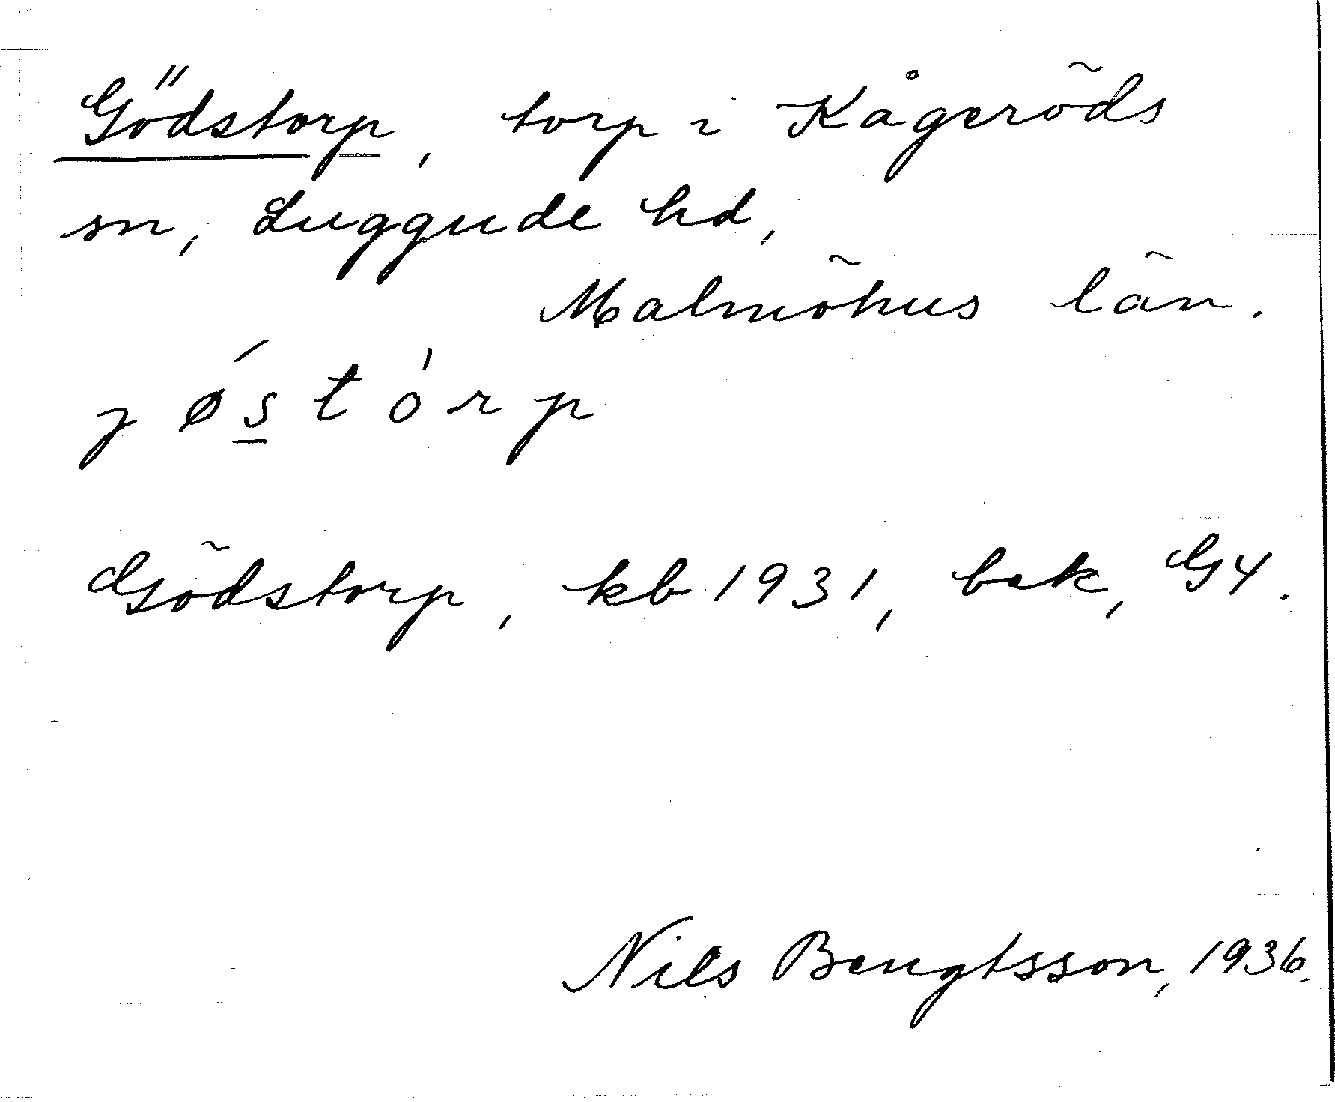 Gödstorp, torp i Kågeröds
sn, Luggude hd,
Malmöhus län.
jǿstórp
Gödstorp, kb 1931, bek, G4.
Nils Bengtsson, 1936.